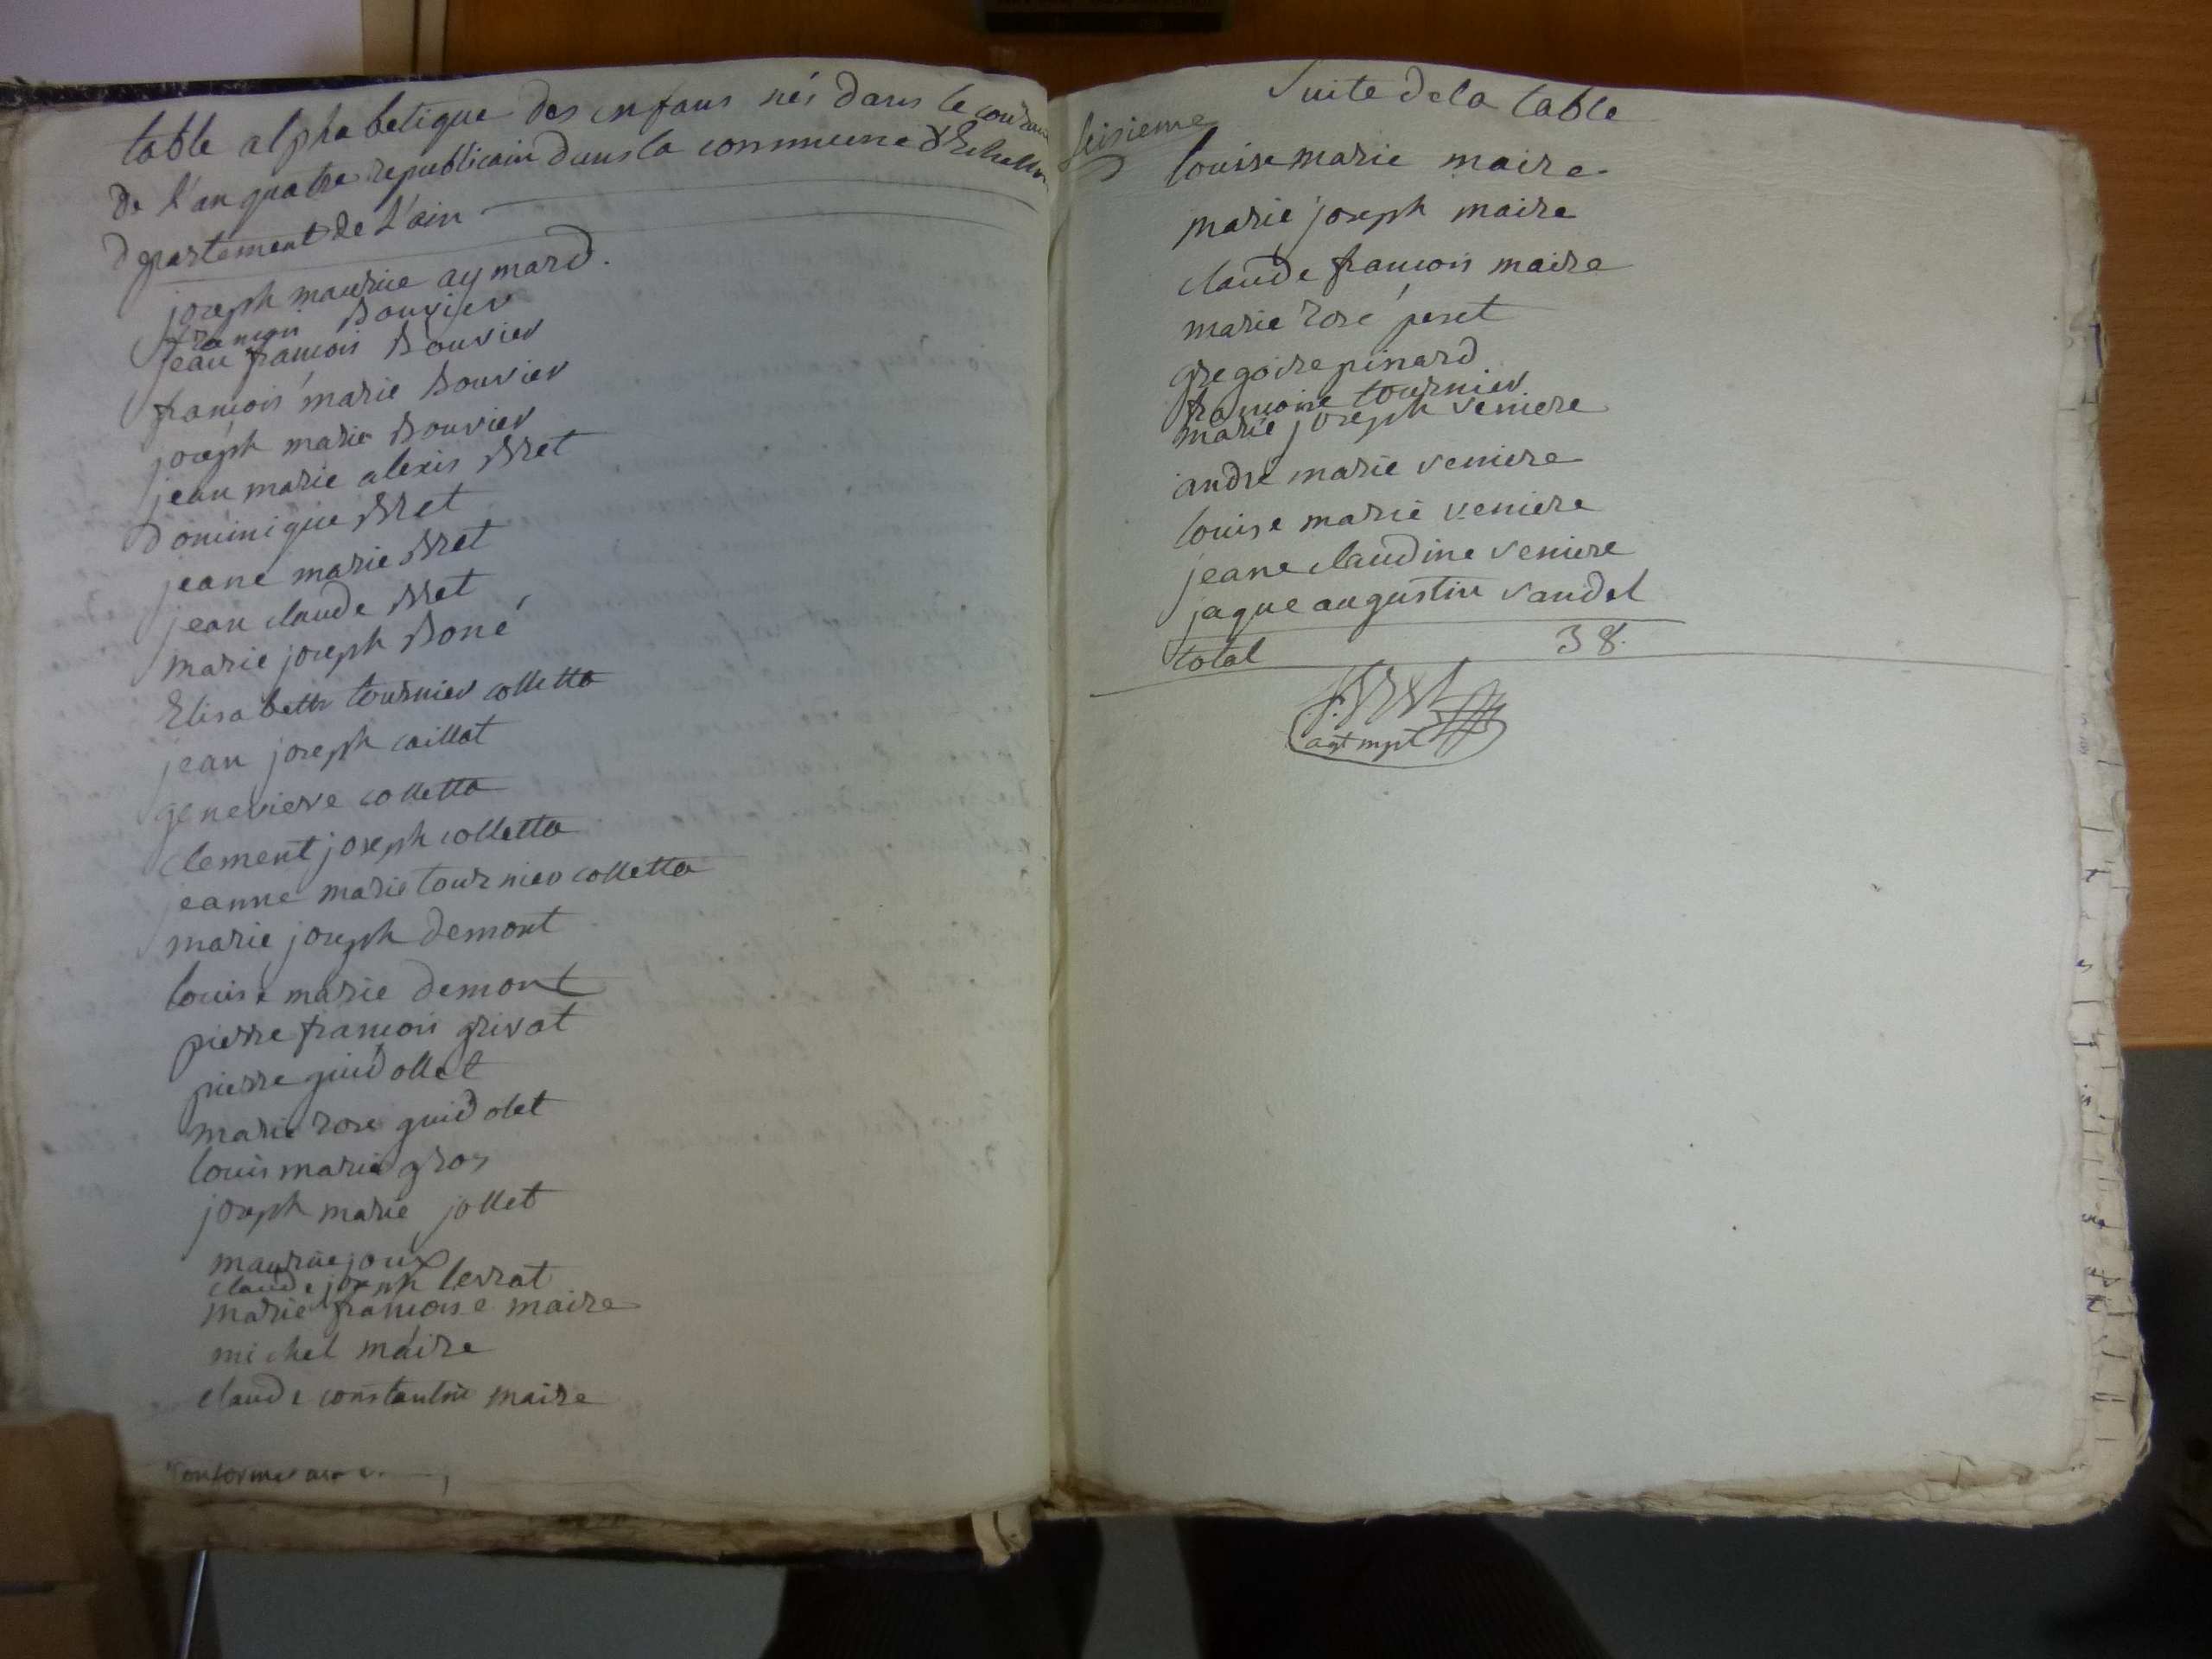 table alphabetique des enfans nés dans le courant
de l'an quatre republicain dans la commune d'Echallon
departement de l'ain
joseph maurice aymard.
francois Bouvier
jean francois Bouvier
francois marie Bouvier
joseph marie Bouvier
jean marie alexis Bret
dominique Bret
jeane marie Bret
jean claude Bret
marie joseph Boné
Elisabeth tournier colletta
jean joseph caillat
genevieve colletta
clement joseph colletta
jeanne marie tournier colletta
marie joseph demont
louise marie demont
pierre francois grivat
pierre guidollet
marie rose guidolet
louis marie gros
joseph marie jollet
maurice joux
claude joseph levrat
marie francoise maire
michel maire
claude constantin maire
conforme
Suite de la table
seisieme
louise marie maire
marie joseph maire
claude francois maire
marie rose peret
gregoire pinard
francoise tournier
marie joseph veniere
andre marie veniere
louise marie veniere
jeane claudine veniere
jaque augustin vandel
total 38.
agt mpl